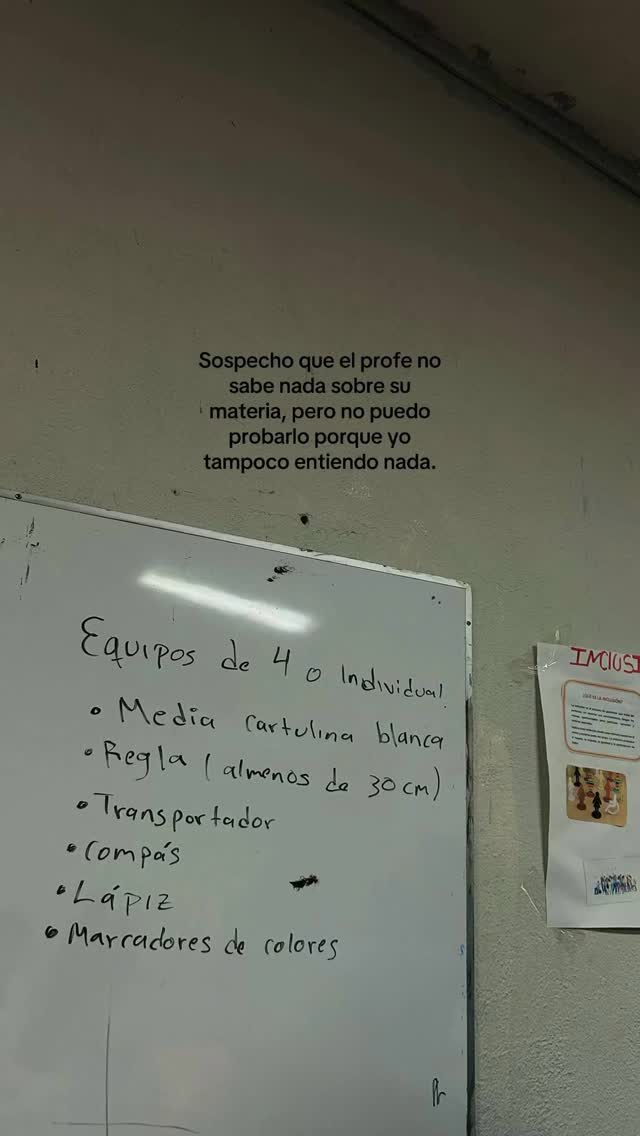 Sospecho que el profe no
sabe nada sobre su
materia, pero no puedo
probarlo porque yo
tampoco entiendo nada.
Equipos de 4 o Individual
• Media cartulina blanca
• Regla (almenos de 30 cm)
• Transportador
• Compás
• Lápiz
• Marcadores de colores
INCIUSI
¿QUÉ ES LA INCLUSIÓN?